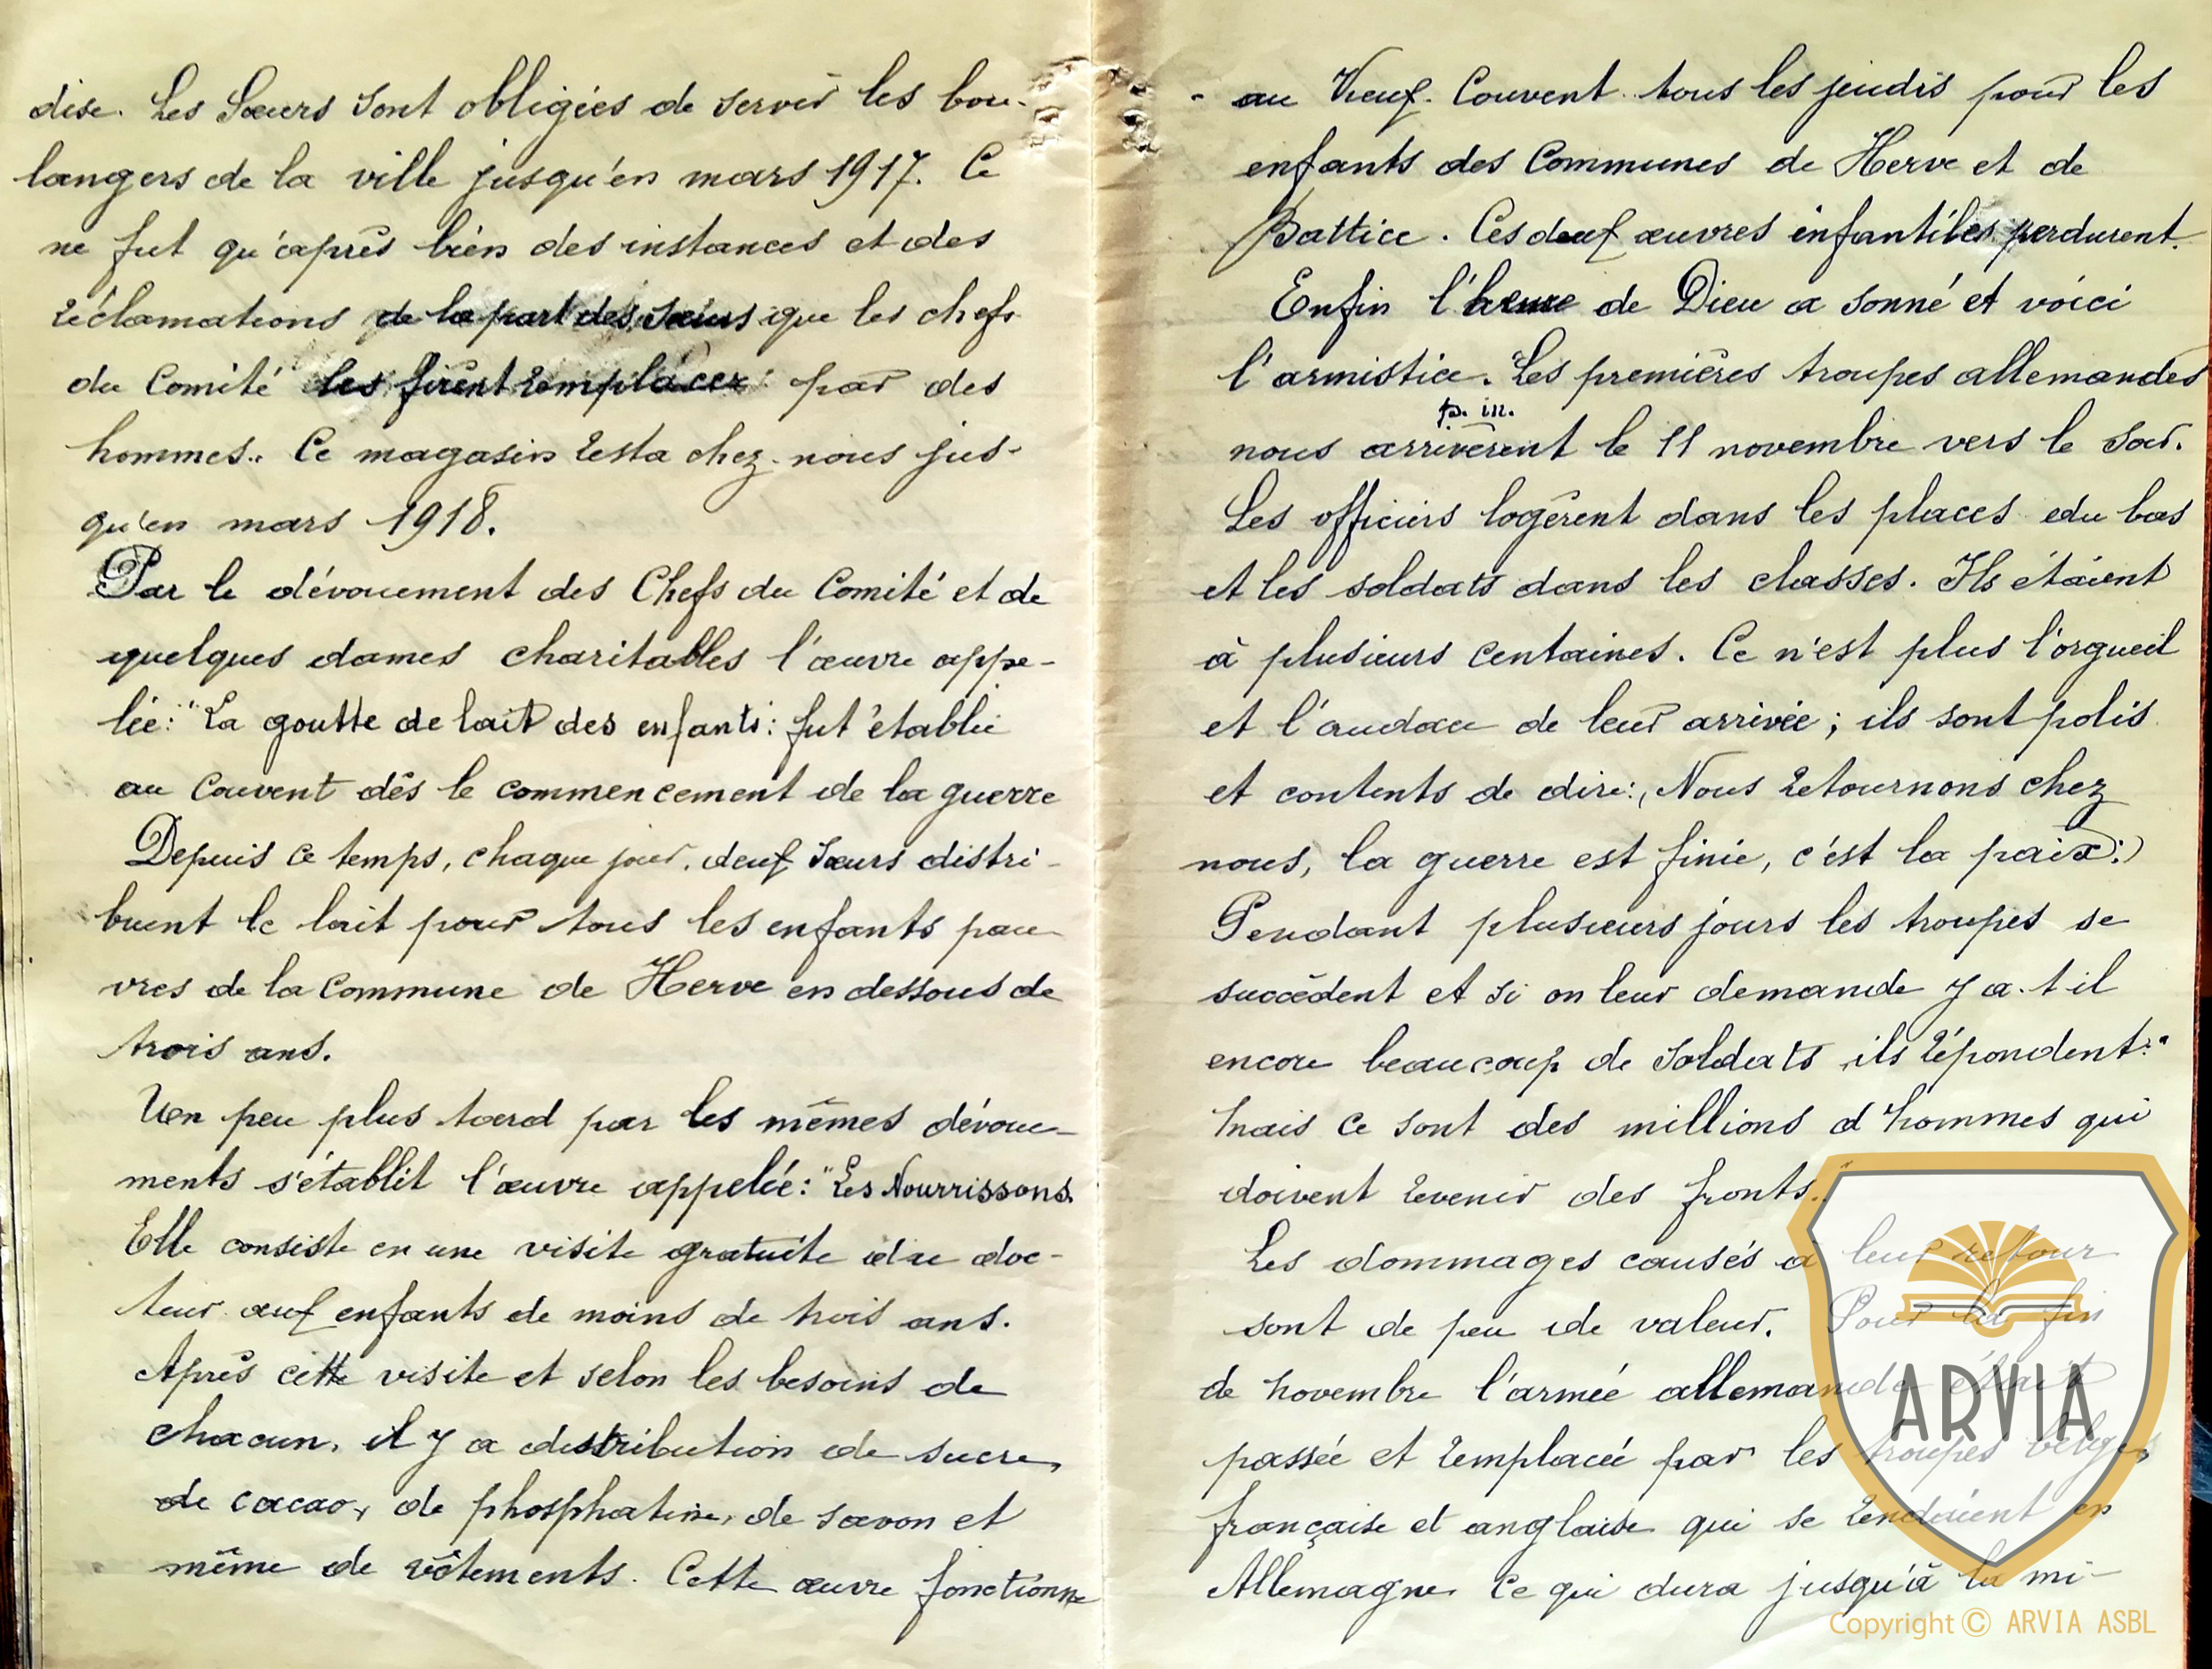 dise. Les Sœurs sont obligées de servir les bou-
langers de la ville jusqu'en mars 1917. Ce
ne fut qu'après bien des instances et des
réclamations de la part des Sœurs que les chefs
du Comité les firent remplacer par des
hommes. Ce magasin resta chez-nous jus-
qu'en mars 1918.
Par le dévouement des Chefs du Comité et de
quelques dames charitables l'œuvre appe-
lée: "La goutte de lait des enfants: fut établie
au Couvent dès le commencement de la guerre
Depuis ce temps, chaque jour, deux Sœurs distri-
buent le lait pour tous les enfants pau-
vres de la Commune de Herve en dessous de
trois ans.
Un peu plus tard par les mêmes dévoue-
ments s'établit l'œuvre appelée: "Les Nourrissons.
Elle consiste en une visite gratuite du doc-
teur aux enfants de moins de trois ans.
Après cette visite et selon les besoins de
chacun, il y a distribution de sucre,
de cacao, de phosphatine, de savon et
même de vêtements. Cette œuvre fonctionne
au Vieux-Couvent tous les jeudis pour les
enfants des Communes de Herve et de
Battice. Ces deux œuvres enfantiles perdurent.
Enfin l'heure de Dieu a sonné et voici
l'armistice. Les premières troupes allemandes
p. in.
nous arrivèrent le 11 novembre vers le soir.
Les officiers logèrent dans les places du bas
et les soldats dans les classes. Ils étaient
à plusieurs centaines. Ce n'est plus l'orgueil
et l'audace de leur arrivée; ils sont polis
et contents de dire: Nous retournons chez
nous, la guerre est finie, c'est la paix:)
Pendant plusieurs jours les troupes se
succèdent et si on leur demande y a-t-il
encore beaucoup de soldats ils répondent:"
Mais ce sont des millions d'hommes qui
doivent revenir des fronts."
Les dommages causés à leur retour
sont de peu de valeur. Pour la fin
de novembre l'armée allemande était
passée et remplacée par les troupes belges,
française et anglaise qui se rendaient en
Allemagne. Ce qui dura jusqu'à la mi-
ARVIA
Copyright © ARVIA ASBL